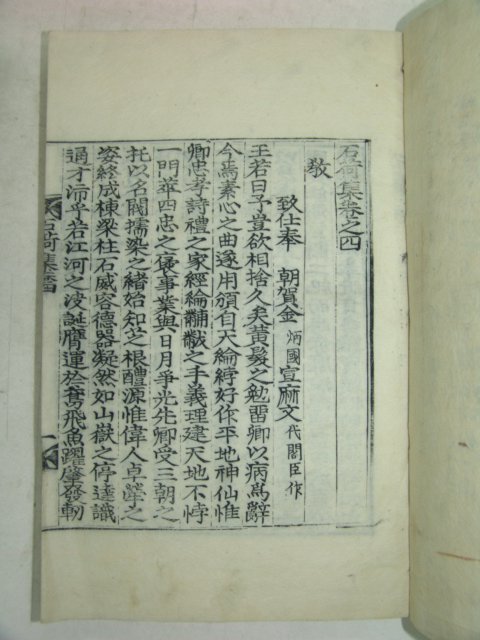 石荷集卷之四
敎
致仕奉 朝賀金炳國宣麻文代閣臣作
王若曰予豈欲相捨久矣黃髮之勉留卿以病爲辭
今焉素心之曲遂用頒自天綸綍好作平地神仙惟
卿忠孝詩禮之家經綸黼黻之手義理建天地不悖
一門華四忠之褒事業與日月爭光先卿受三朝之
托以名閥擩染之緖始知芝根醴源惟偉人卓犖之
姿終成棟梁柱石威容德器凝然如山嶽之停達識
通才沛乎若江河之決誕膺運於鳶飛魚躍肇發軔
石荷集 四
一